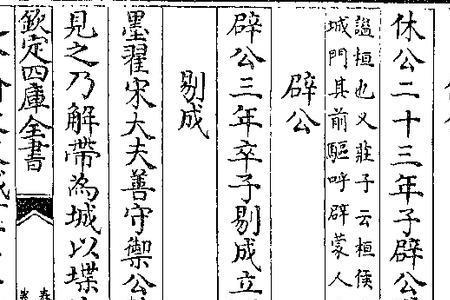 休公二十三年子辟公
諡桓也又莊子云桓侯
城門其前驅呼辟蒙人
辟公
辟公三年卒子剔成立
剔成
墨翟宋大夫善守禦公
見之乃解帶為城以堞
欽定四庫全書